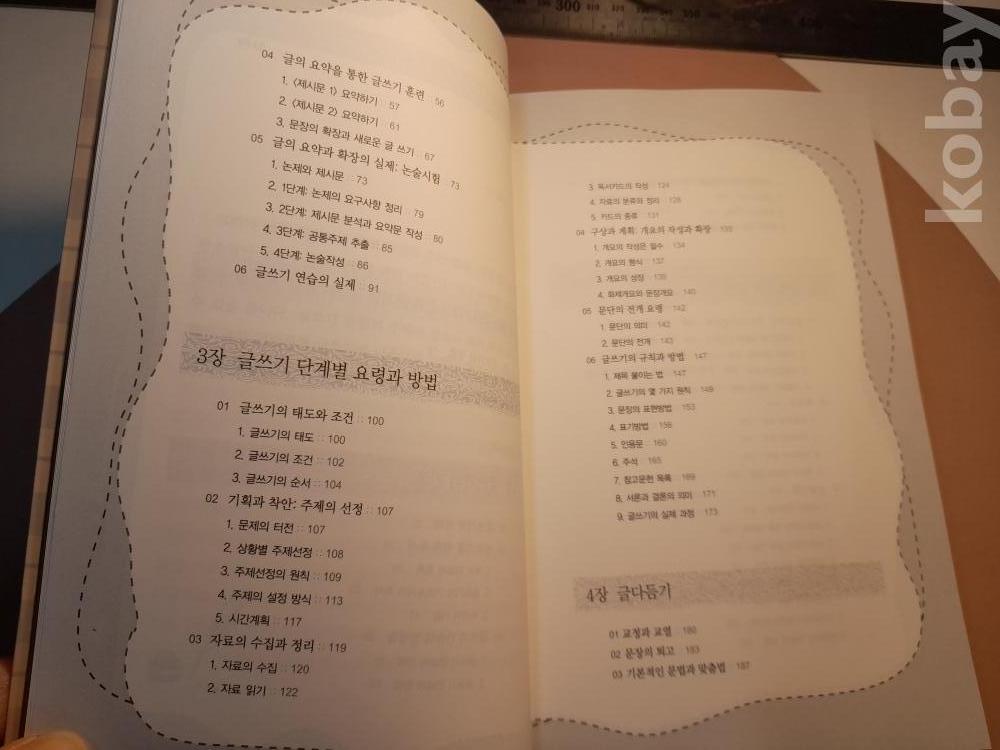 04 글의 요약을 통한 글쓰기 훈련 :: 56
1. 〈제시문 1〉 요약하기 :: 57
2. 〈제시문 2〉 요약하기 :: 61
3. 문장의 확장과 새로운 글 쓰기 :: 67
05 글의 요약과 확장의 실제: 논술시험 :: 73
1. 논제와 제시문 :: 73
2. 1단계: 논제의 요구사항 정리 :: 79
3. 2단계: 제시문 분석과 요약문 작성 :: 80
4. 3단계: 공통주제 추출 :: 85
5. 4단계: 논술작성 :: 86
06 글쓰기 연습의 실제 :: 91
3장 글쓰기 단계별 요령과 방법
01 글쓰기의 태도와 조건 :: 100
1. 글쓰기의 태도 :: 100
2. 글쓰기의 조건 :: 102
3. 글쓰기의 순서 :: 104
02 기획과 착안: 주제의 선정 :: 107
1. 문제의 터전 :: 107
2. 상황별 주제선정 :: 108
3. 주제선정의 원칙 :: 109
4. 주제의 설정 방식 :: 113
5. 시간계획 :: 117
03 자료의 수집과 정리 :: 119
1. 자료의 수집 :: 120
2. 자료 읽기 :: 122
3. 독서카드의 작성 124
4. 자료의 분류와 정리 128
5. 카드의 종류 131
04 구상과 계획: 개요의 작성과 확장 133
1. 개요의 작성은 필수 134
2. 개요의 형식 137
3. 개요의 성장 139
4. 화제개요와 문장개요 140
05 문단의 전개 요령 142
1. 문단의 의미 142
2. 문단의 전개 143
06 글쓰기의 규칙과 방법 147
1. 제목 붙이는 법 147
2. 글쓰기의 몇 가지 원칙 149
3. 문장의 표현방법 153
4. 표기방법 156
5. 인용문 160
6. 주석 165
7. 참고문헌 목록 169
8. 서론과 결론의 의미 171
9. 글쓰기의 실제 과정 173
4장 글다듬기
01 교정과 교열 180
02 문장의 퇴고 183
03 기본적인 문법과 맞춤법 187
kobay